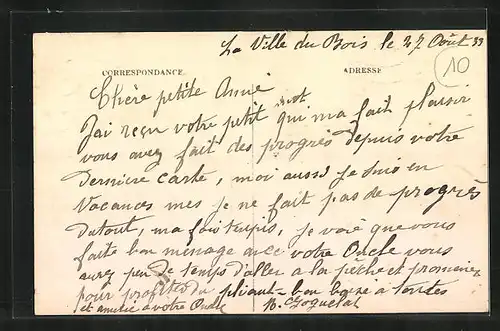 La Ville du Bois le 27 Août 33
10
CORRESPONDANCE
ADRESSE
Chère petite Anni
mot
J'ai reçu votre petit qui ma fait plaisir
vous avez fait des progrès depuis votre
dernière carte, moi aussi je suis en
Vacances mes je ne fait pas de progrès
du tout, ma foi tempis, je voie que vous
faite bon menage avec votre Oncle vous
aurez peu de temps d'aller a la pêche et promener
pour profiter du pliant - bon baisé a toutes
et amitié a votre Oncle